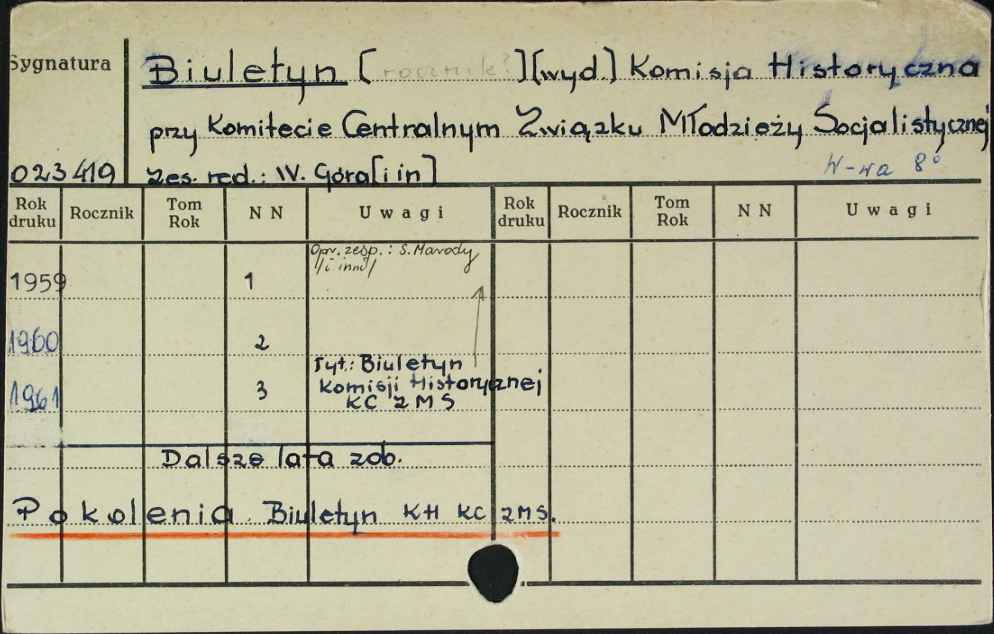 Sygnatura
Biuletyn [rocznik?] [wyd.] Komisja Historyczna
przy Komitecie Centralnym Związku Młodzieży Socjalistycznej
023419 zes. red.: W. Góra [i in]
W-wa 8°
Rok druku Rocznik Tom Rok N N Uwagi Rok druku Rocznik Tom Rok N N Uwagi
Opr. zesp.: S.
/i inni/
1959 1
1960 2
Tyt.: Biuletyn
1961 3 Komisji Historycznej
KC ZMS
Dalsze lata zob.
Pokolenia. Biuletyn KH KC ZMS.